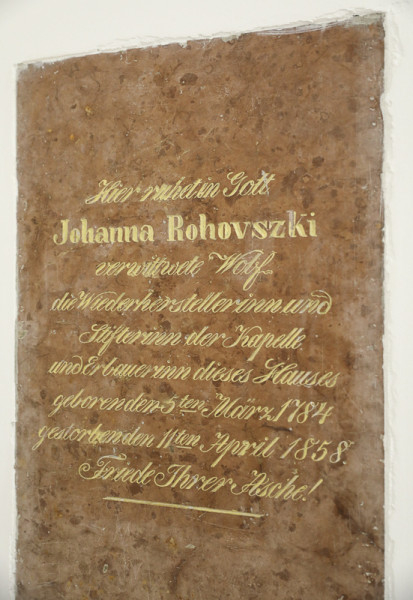 Hier ruhet in Gott
Johanna Rohovszki
verwittwete Wolf
die Wiederherstellerinn und
Stifterinn der Kapelle
und Erbauerinn dieses Hauses
geboren den 5ten März 1784
gestorben den 11ten April 1858.
Friede Ihrer Asche!